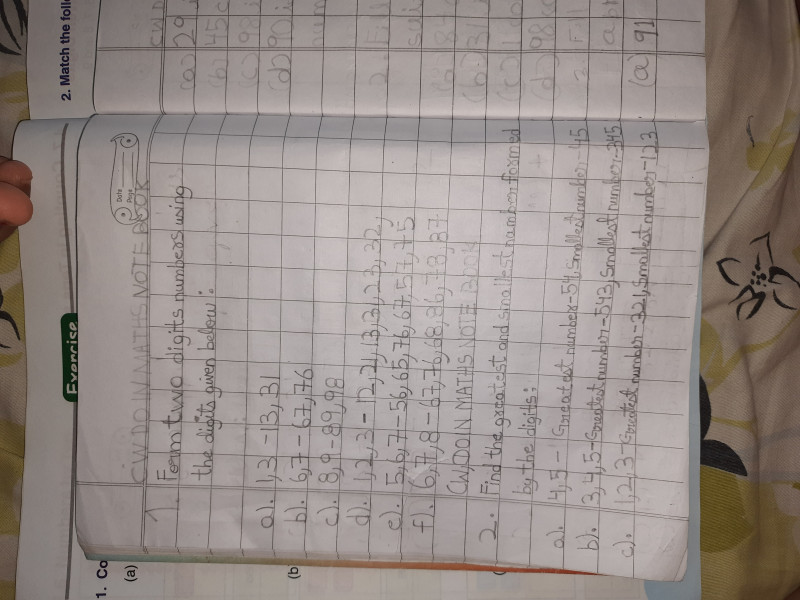 Date
Page
CW,DO IN MATHS NOTE BOOK
1. Form two digits numbers using
the digits given below:
a). 1,3-13,31
b). 6,7-67,76
c). 8,9-89,98
d). 1,2,3-12,21,13,31,23,32,
e). 5,6,7-56,65,76,67,57,75
f). 6,7,8-67,76,68,86,78,87
CW,DO IN MATHS NOTE BOOK
2. Find the greatest and smallest number formed
by the digits:
a). 4,5- Greatest number-54, Smallest number-45
b). 3,4,5-Greatest number-543, Smallest number-345
c). 1,2,3-Greatest number-321, Smallest number-123
CW
(a) 29
(b) 45
(c) 98
(d) 90
num
(d) 98
(a) 91
Exercise
1. Co
(a)
(b
2. Match the follo